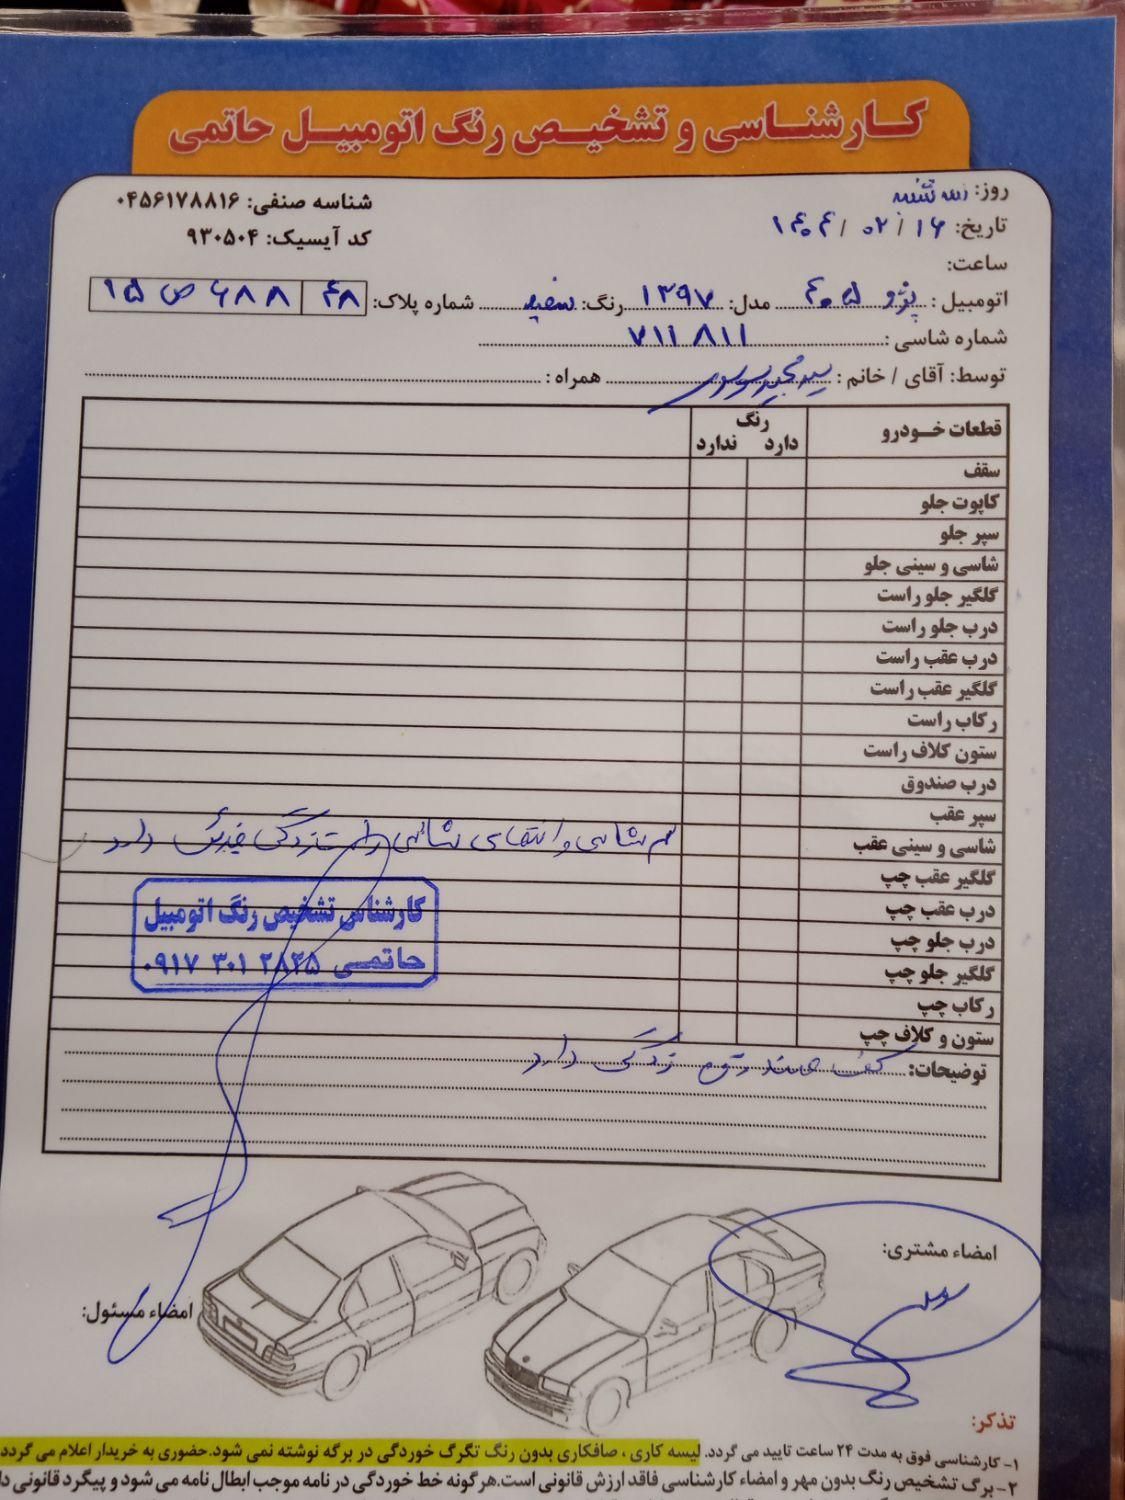 کارشناسی و تشخیص رنگ اتومبیل حاتمی
روز: سه شنبه
شناسه صنفی: ۰۴۵۶۱۷۸۸۱۶
تاریخ: ۱۴۰۴/۰۲/۱۶
کد آیسیک: ۹۳۰۵۰۴
ساعت:
اتومبیل: پژو ۴۰۵ مدل: ۱۳۹۷ رنگ: سفید شماره پلاک: ۴۸ ۶۸۸ ص ۱۵
شماره شاسی: ۷۱۱۸۱۱
توسط: آقای / خانم: سید مجید موسوی همراه:
قطعات خودرو
رنگ
دارد ندارد
سقف
کاپوت جلو
سپر جلو
شاسی و سینی جلو
گلگیر جلو راست
درب جلو راست
درب عقب راست
گلگیر عقب راست
رکاب راست
ستون کلاف راست
درب صندوق
سپر عقب
شاسی و سینی عقب
سر شاسی و انتهای شاسی راست زدگی دارد
گلگیر عقب چپ
درب عقب چپ
درب جلو چپ
گلگیر جلو چپ
رکاب چپ
ستون و کلاف چپ
کارشناس تشخیص رنگ اتومبیل
حاتمی ۰۹۱۷ ۳۰۱ ۲۸۲۵
توضیحات: کف صندوق زدگی دارد
امضاء مشتری:
امضاء مسئول:
تذکر:
۱- کارشناسی فوق به مدت ۲۴ ساعت تایید می گردد. لیسه کاری، صافکاری بدون رنگ تگرگ خوردگی در برگه نوشته نمی شود. حضوری به خریدار اعلام می گردد
۲- برگ تشخیص رنگ بدون مهر و امضاء کارشناسی فاقد ارزش قانونی است. هرگونه خط خوردگی در نامه موجب ابطال نامه می شود و پیگرد قانونی